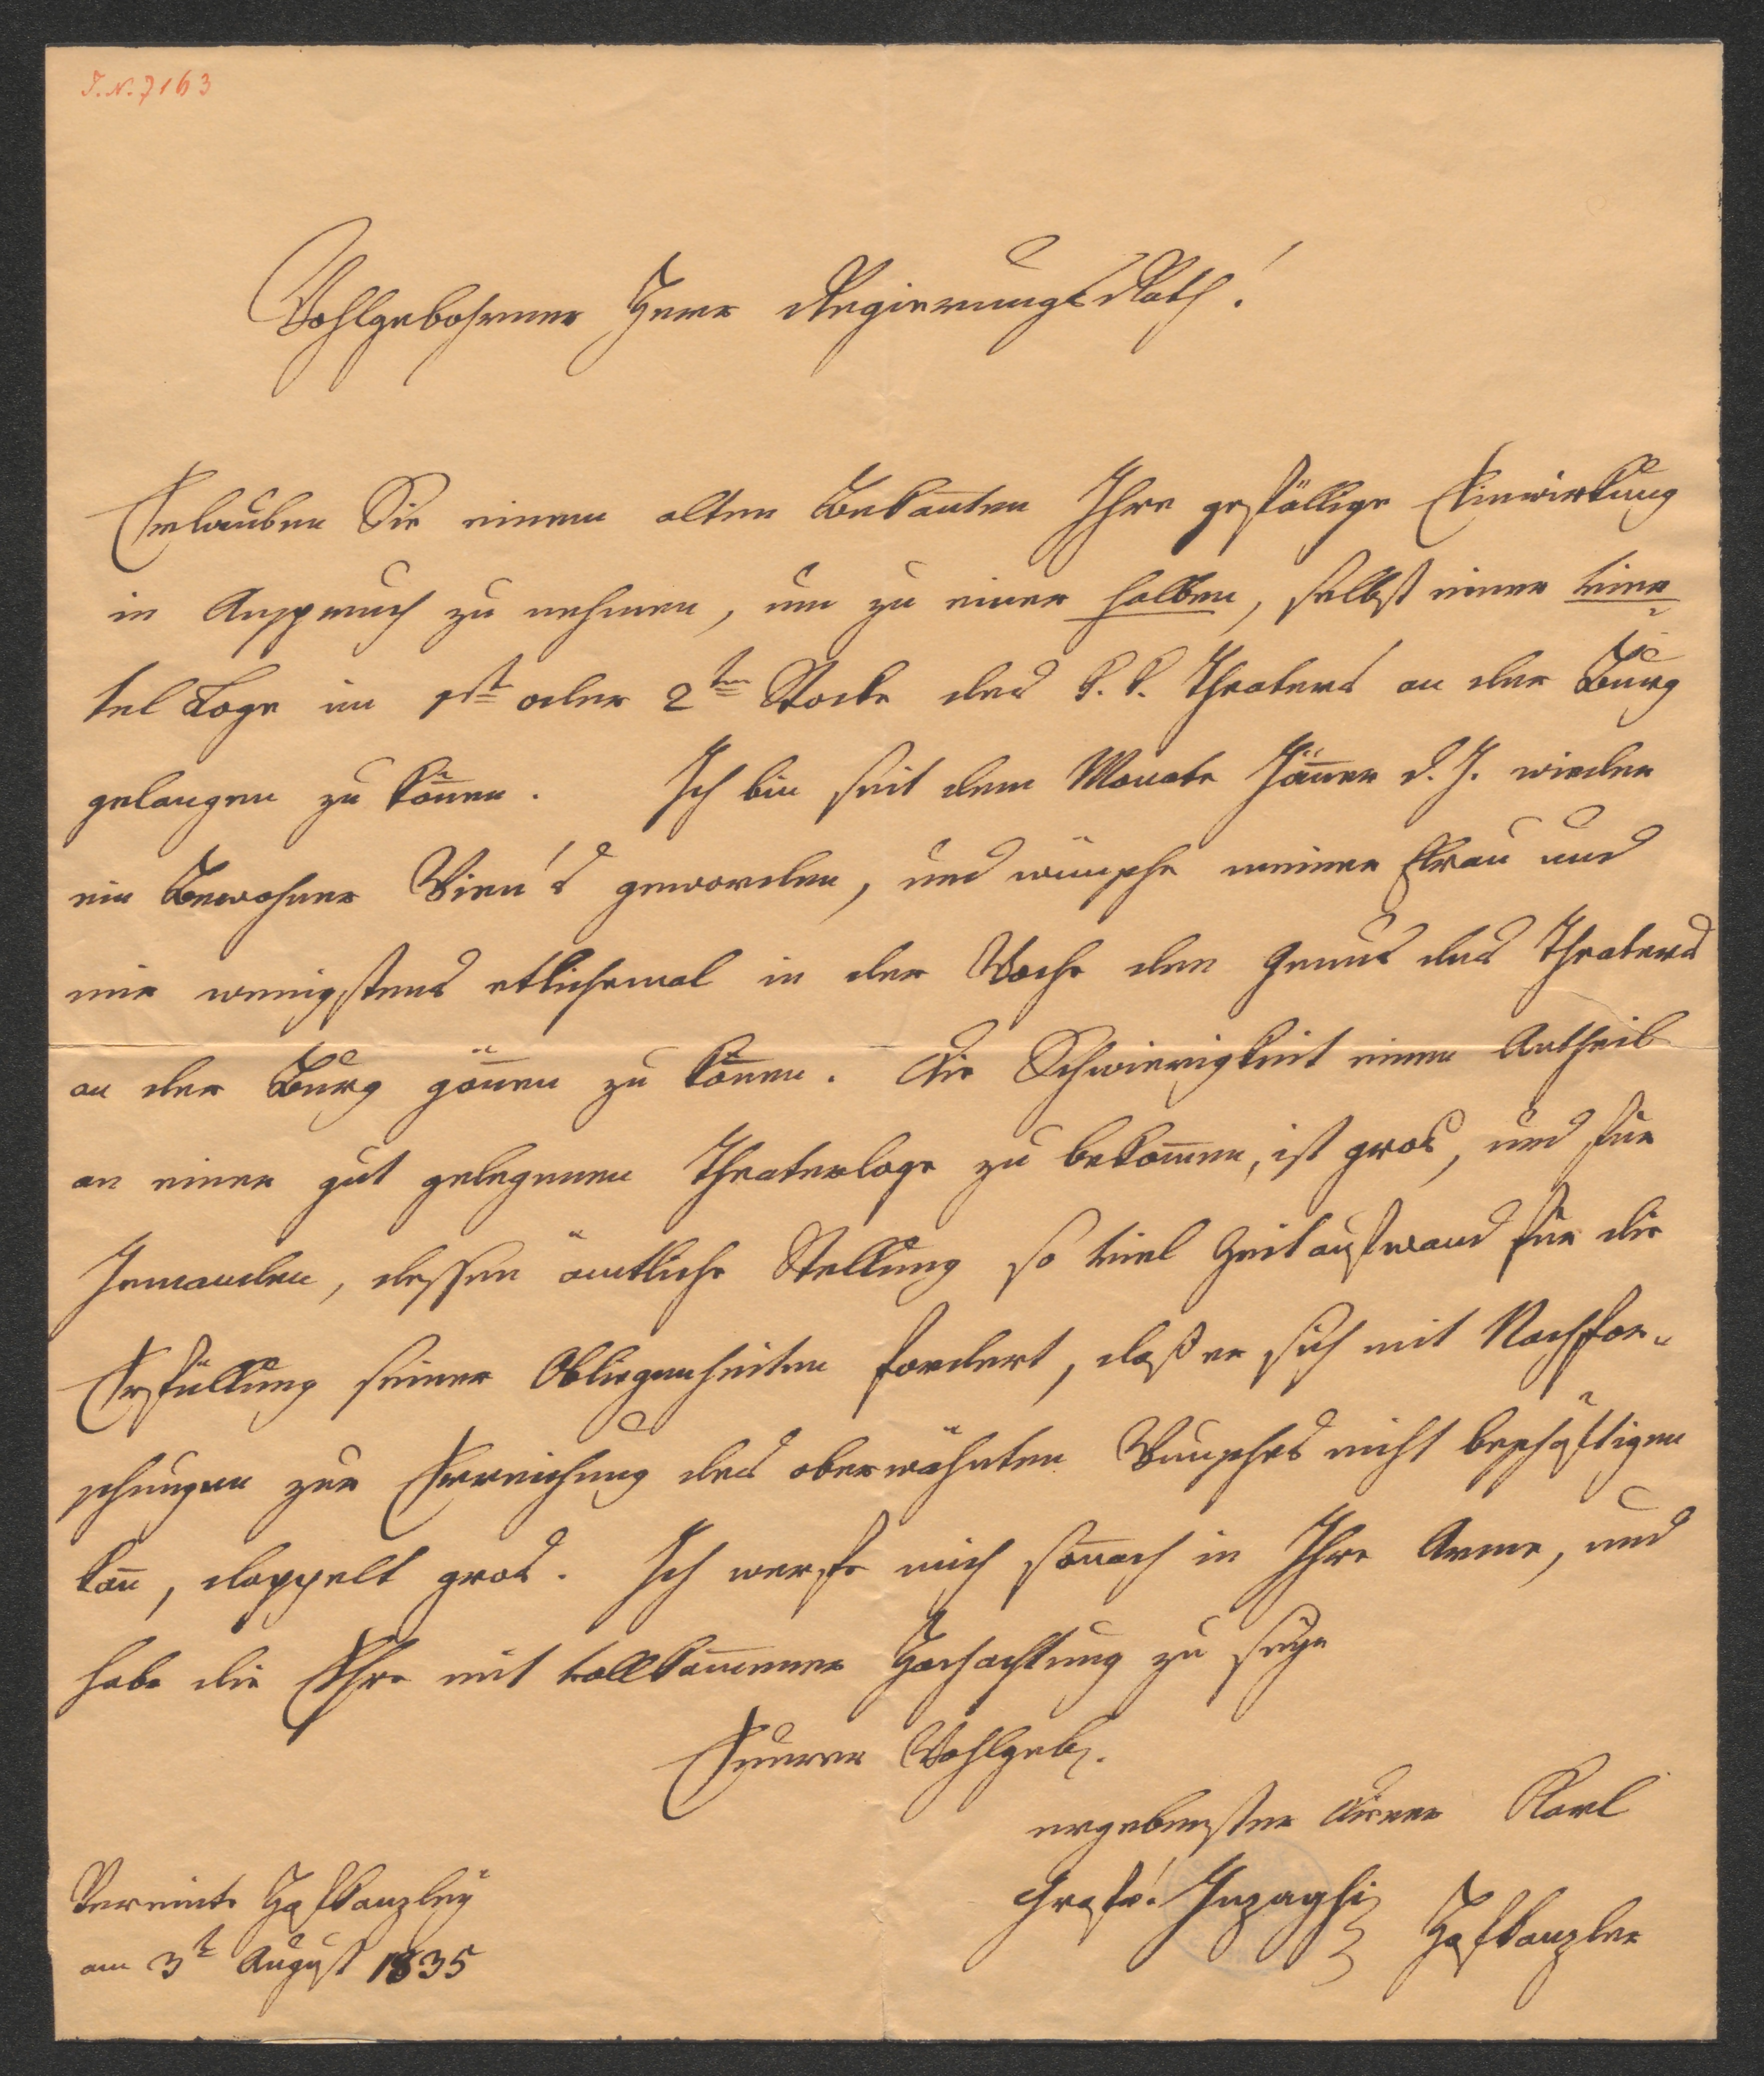 I.N. 7163
Wohlgebohrner Herr Regierungs Rath!
Erlauben Sie einem alten Bekañten Ihre gefällige Einwirkung
in Anspruch zu nehmen, um zu einer halben, selbst einer vier
tel Loge im 1st oder 2ten Stocke des k. k. Theaters an der Burg
gelangen zu köñen. Ich bin seit dem Monate Jäñer d. J. wieder
ein Bewohner Wien's geworden, und wünsche meiner Frau und
mir wenigstens etlichemal in der Woche den Genus des Theaters
an der Burg göñen zu köñen. Die Schwierigkeit einen Antheil
an einer gut gelegenen Theaterloge zu bekom̄en, ist gros, und für
Jemanden, dessen ämtliche Stellung so viel Zeitaufwand für die
Erfüllung seiner Obliegenheiten fordert, daß er sich mit Nachfor-
schungen zur Erreichung des oberwähnten Wunsches nicht beschäftigen
kañ, doppelt gros. Ich werfe mich soñach in Ihre Arme, und
habe die Ehre mit vollkom̄ener Hochachtung zu seyn
Euerer Wohlgeb.
ergebenster Diener Karl
Graf v. Inzaghi
Hofkanzler
Vereinte Hofkanzley
am 3t August 1835